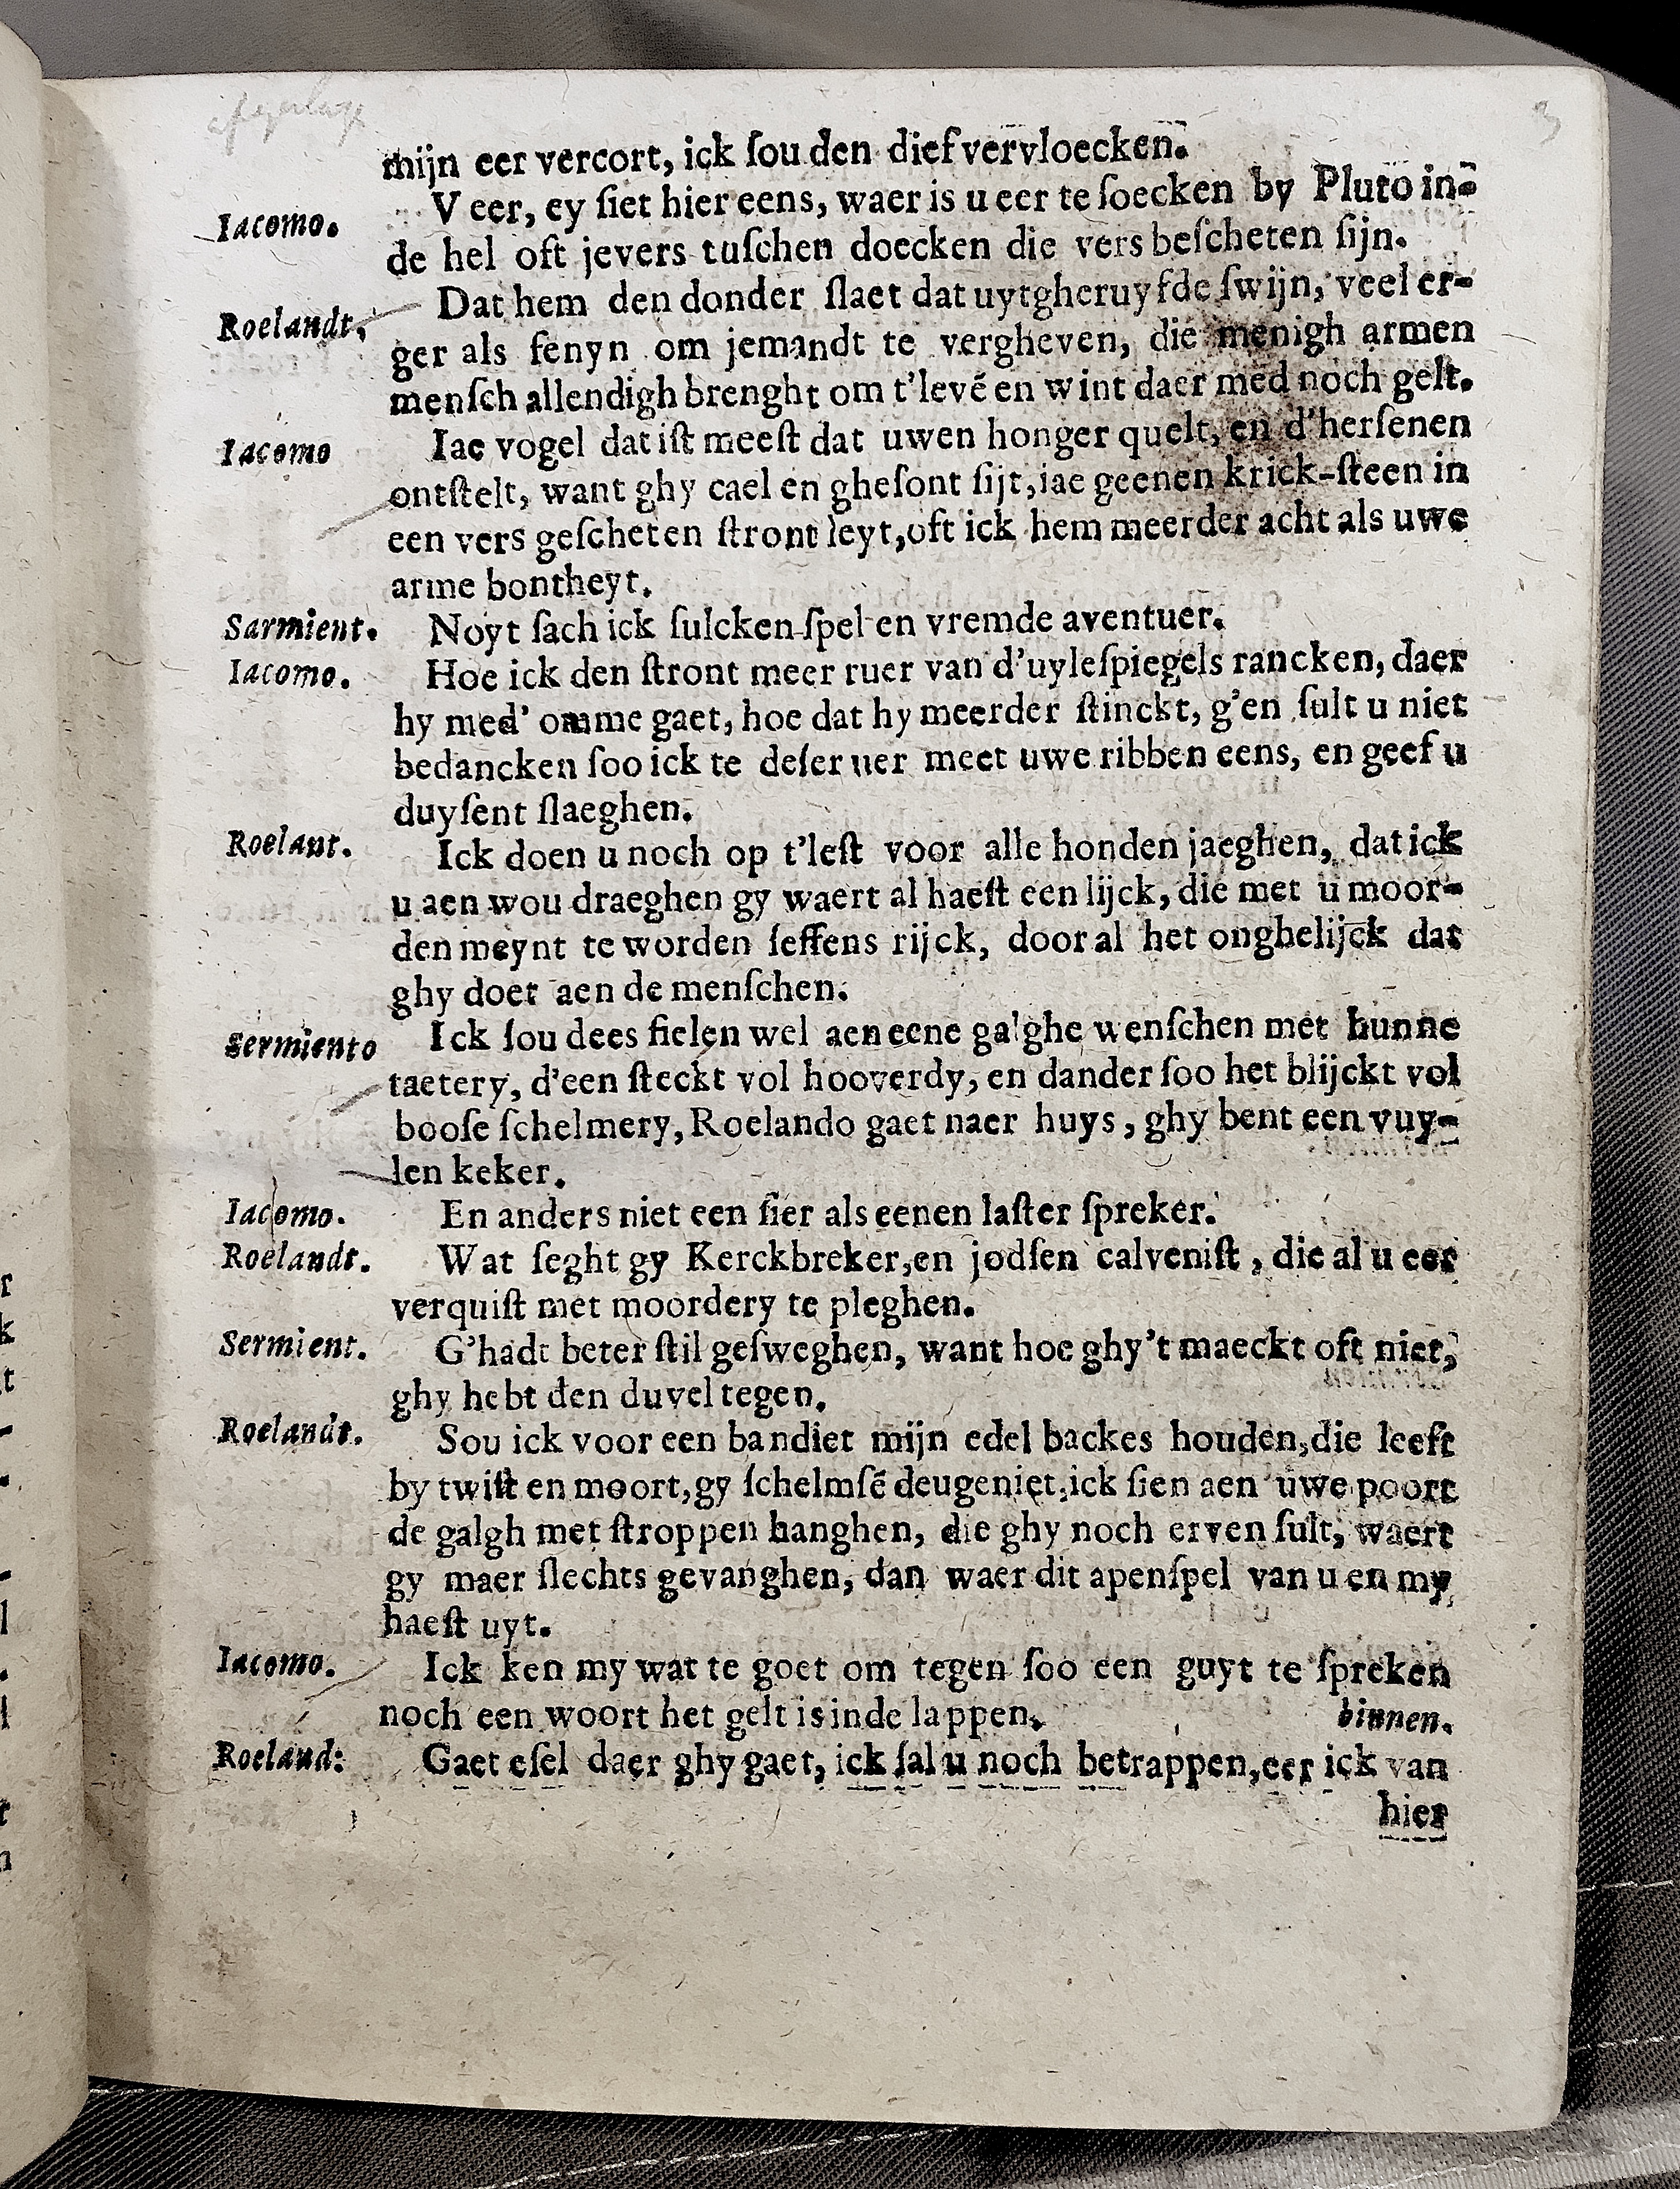 3
mijn eer vercort, ick ſou den dief vervloecken.
Iacomo. V eer, ey ſiet hier eens, waer is u eer te ſoecken by Pluto in-
de hel oft jevers tuſchen doecken die vers beſcheten ſijn.
Roelandt. Dat hem den donder ſlaet dat uytgheruyſde ſwijn, veel er-
ger als fenyn om jemandt te vergheven, die menigh armen
menſch allendigh brenght om t'levẽ en wint daer med noch gelt.
Iacomo Iae vogel dat iſt meeſt dat uwen honger quelt, en d'herſenen
ontſtelt, want ghy cael en gheſont ſijt, iae geenen krick-ſteen in
een vers geſcheten ſtront leyt, oft ick hem meerder acht als uwe
arme bontheyt.
Sarmient. Noyt ſach ick ſulcken ſpel en vremde aventuer.
Iacomo. Hoe ick den ſtront meer ruer van d'uyleſpiegels rancken, daer
hy med' omme gaet, hoe dat hy meerder ſtinckt, g'en ſult u niet
bedancken ſoo ick te deſer uer meet uwe ribben eens, en geef u
duyſent ſlaeghen.
Roelant. Ick doen u noch op t'leſt voor alle honden jaeghen, dat ick
u aen wou draeghen gy waert al haeſt een lijck, die met u moor-
den meynt te worden ſeffens rijck, door al het onghelijck dat
ghy doet aen de menſchen.
Sermiento Ick ſou dees fielen wel aen eene galghe wenſchen met hunne
taetery, d'een ſteckt vol hooverdy, en dander ſoo het blijckt vol
booſe ſchelmery, Roelando gaet naer huys, ghy bent een vuy-
len keker.
Iacomo. En anders niet een ſier als eenen laſter ſpreker.
Roelandt. Wat ſeght gy Kerckbreker, en jodſen calveniſt, die al u eer
verquiſt met moordery te pleghen.
Sermient. G'hadt beter ſtil geſweghen, want hoe ghy't maeckt oft niet,
ghy hebt den duvel tegen.
Roelandt. Sou ick voor een bandiet mijn edel backes houden, die leeft
by twiſt en moort, gy ſchelmſẽ deugeniet, ick ſien aen uwe poort
de galgh met ſtroppen hanghen, die ghy noch erven ſult, waert
gy maer ſlechts gevanghen, dan waer dit apenſpel van u en my
haeſt uyt.
Iacomo. Ick ken my wat te goet om tegen ſoo een guyt te ſpreken
noch een woort het gelt is in de lappen. binnen.
Roeland: Gaet eſel daer ghy gaet, ick ſal u noch betrappen, eer ick van
hier